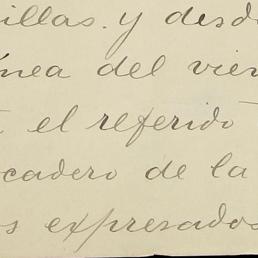 illas. y desd
ínea del vien
el referido
cadero de la
s expresados